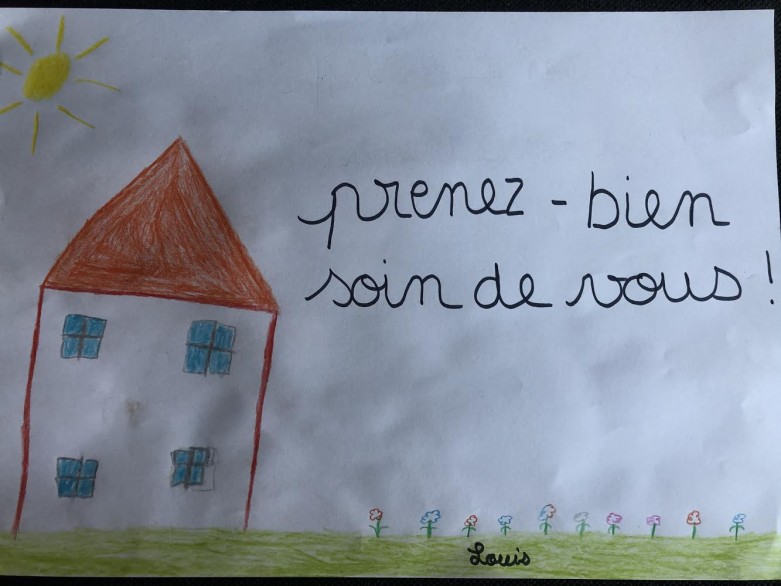 prenez - bien
soin de vous !
Louis